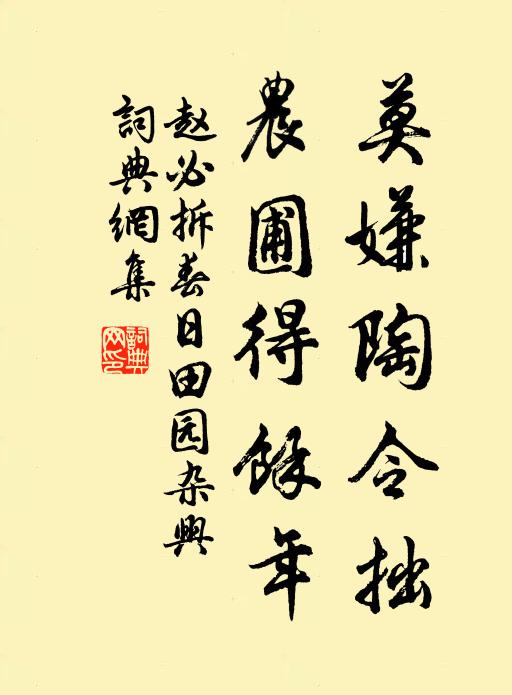 莫嫌陶令拙
農圃得餘年
赵必拆春日田园杂興
詞典網集
詞典网印